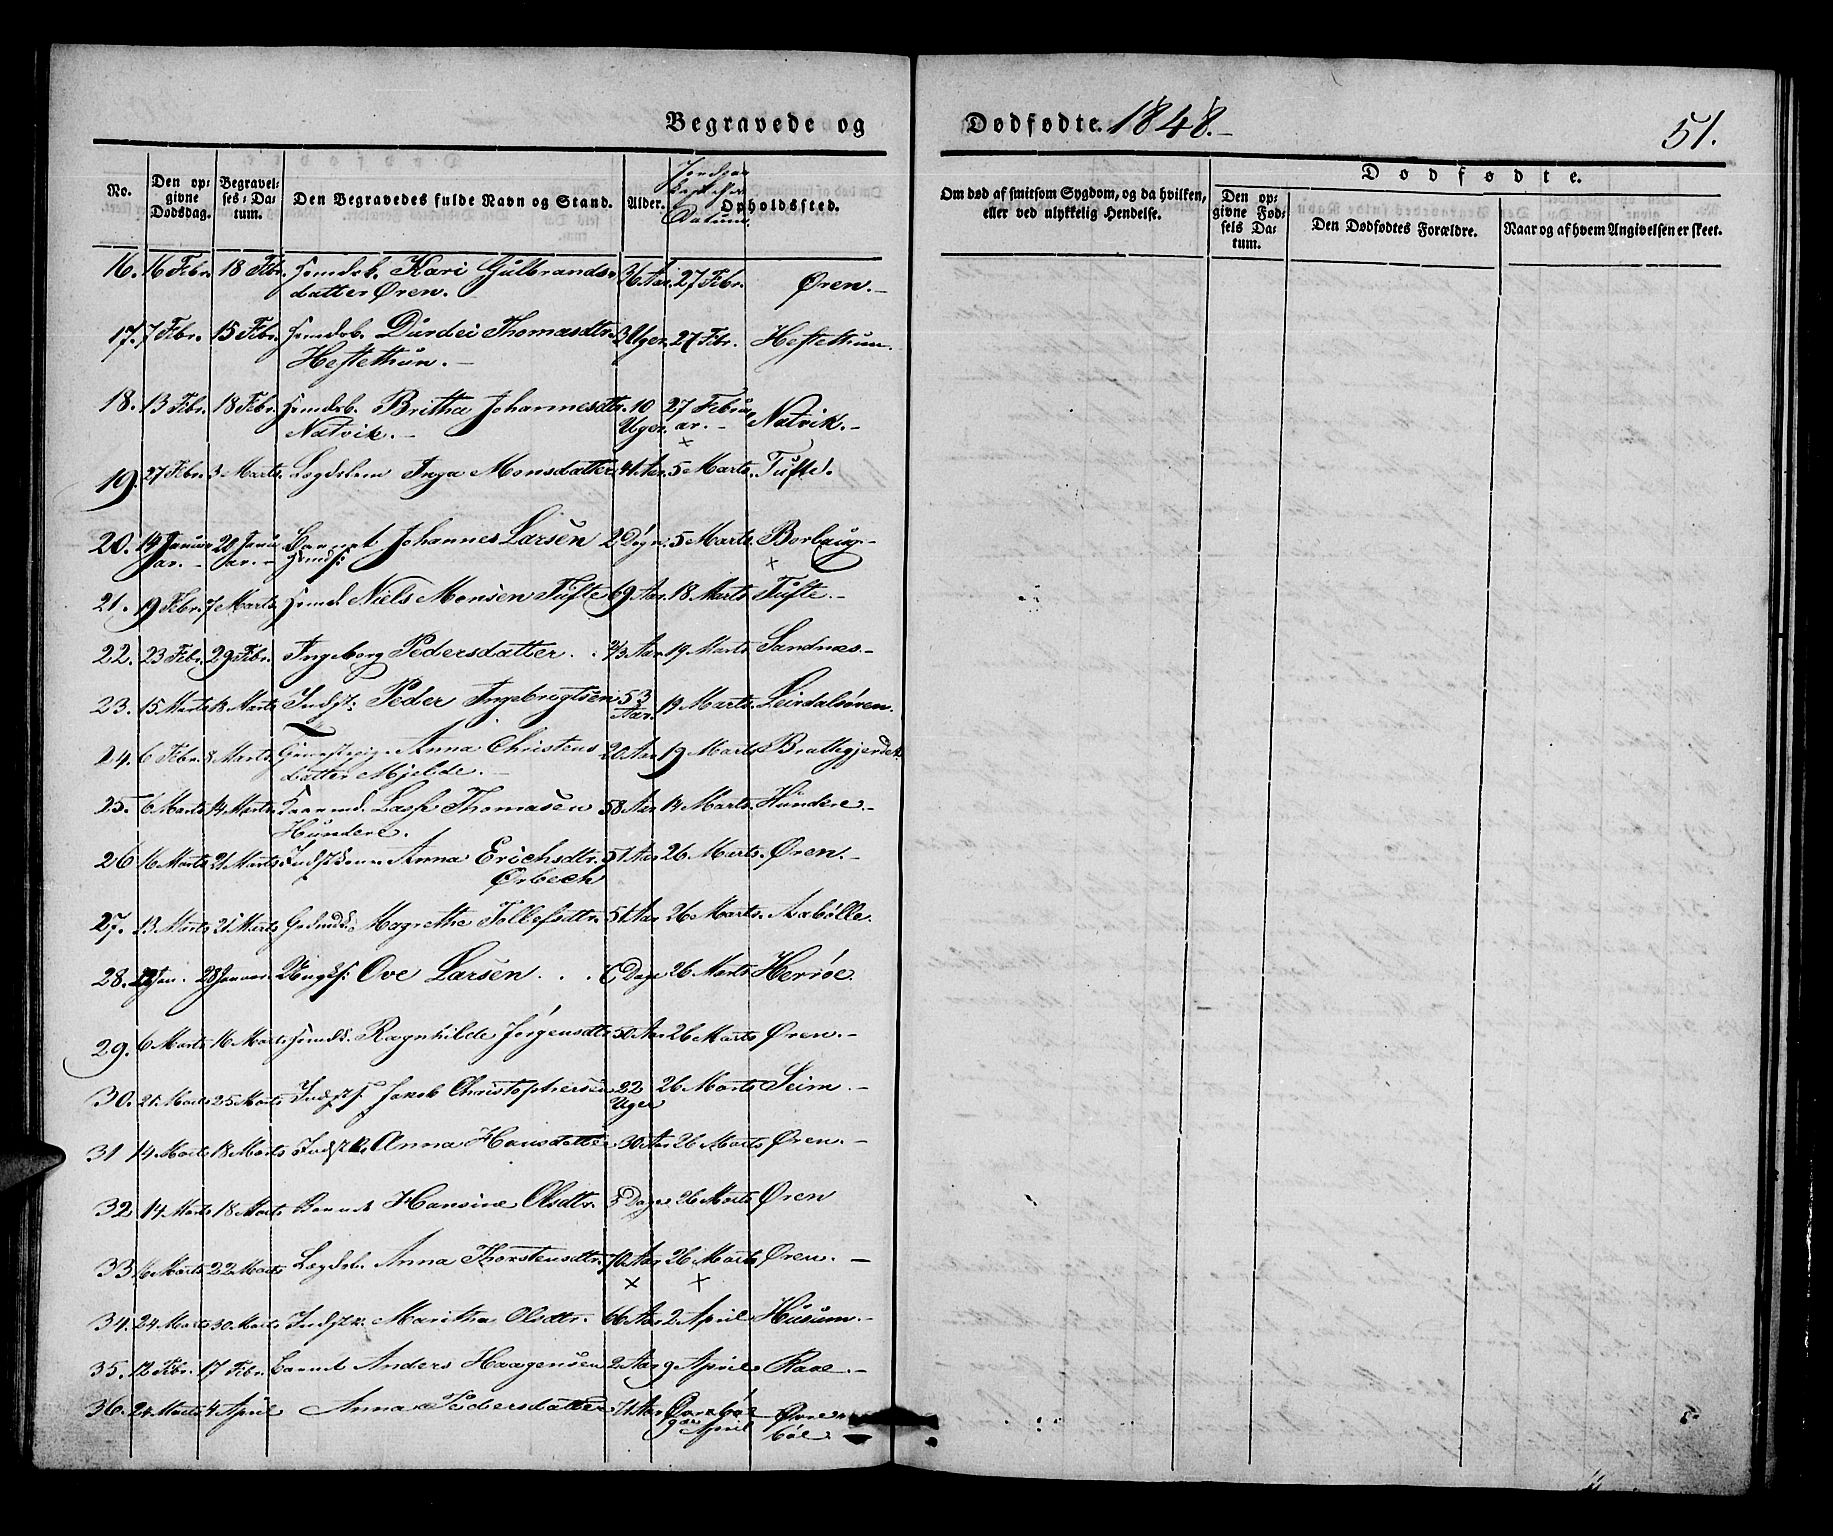 Begravede og Dødfødte. 1848.-
51.
No. Den opgivne Dødsdag. Begravelses-Datum. Den Begravedes fulde Navn og Stand. Alder. Datum. Opholdssted. Om død af smitsom Sygdom, og da hvilken, eller ved ulykkelig Hendelse. Dødfødte. Den opgivne Fødsels Datum. Den Dødfødtes Forældre. Naar og af hvem Angivelsen er skeet.
16. 16 Febr. 18 Febr. Kari Gulbrands- 36 Aar. 27 Febr. Øren.-
datter Øren.
17. 7 Febr. 15 Febr. Durdei Thomasdtr. 3 Uger. 27 Febr. Heftethun.
Heftethun.-
18. 13 Febr. 18 Febr. Britha Johannesdtr. 10 27 Febru- Natvik.-
Natvik.- Uger. ar.-
19. 27 Febr. 3 Marts. Lægdslem Inga Monsdatter 5 Marts. Tufte.
20. 19 Janu- 20 Janu- Johannes Larsen 2 Døgn. 5 Marts. Borlaug-
ar.- ar.-
21. 19 Febr. 7 Marts. Niels Monsen Tufte 69 Aar. 18 Marts Tufte.-
22. 23 Febr. 29 Febr. Ingeborg Pedersdatter. 2/3 Aar 19 Marts Sandnæs.-
23. 15 Marts 18 Marts Indst: Peder Ingebrigtsen 53 19 Marts. Leirdalsøren.
Aar.
24. 6 Febr. 8 Marts. Anna Christens 20 Aar 19 Marts Brattegjerdet
datter Mjelde.-
25. 6 Marts 14 Marts. Lasse Thomasen 58 Aar 14 Marts. Hundere.-
Hundere.
26 16 Marts 21 Marts Anna Erichsdtr. 51 Aar 26 Marts. Øren.-
Ørbech
27. 13 Marts 21 Marts Magrethe Tollefsdtr. 51 Aar 26 Marts. Axbölle.
28. Jan. 28 Januar. Ove Larsen . . 6 Dage 26 Marts Herrøe.
29. 6 Marts 16 Marts Ragnhilde Jörgensdtr 50 Aar 26 Marts Øren.-
30. 21. Marts 25 Marts Jakob Christophersen 22 26 Marts Seim.-
Uger
31 14 Marts 18 Marts Anna Hansdatter 30 Aar 26 Marts Øren.-
32 14 Marts 18 Marts Hansine Olsdtr. 5 Dage 26 Marts Øren
33 16 Marts 22 Marts Lægdsl. Anna Thorstensdtr. 70 Aar 26 Marts Øren.-
34. 24 Marts 30 Marts Maritha Olsdtr. 66 Aar 2 April Husum.-
35. 12 Febr. 17 Febr. Barnet Anders Haagensen 2 Aar 9 April Raae.-
36. 24 Marts 4 April Anna Pedersdatter 71 Aar 9 April Øvre-
böe